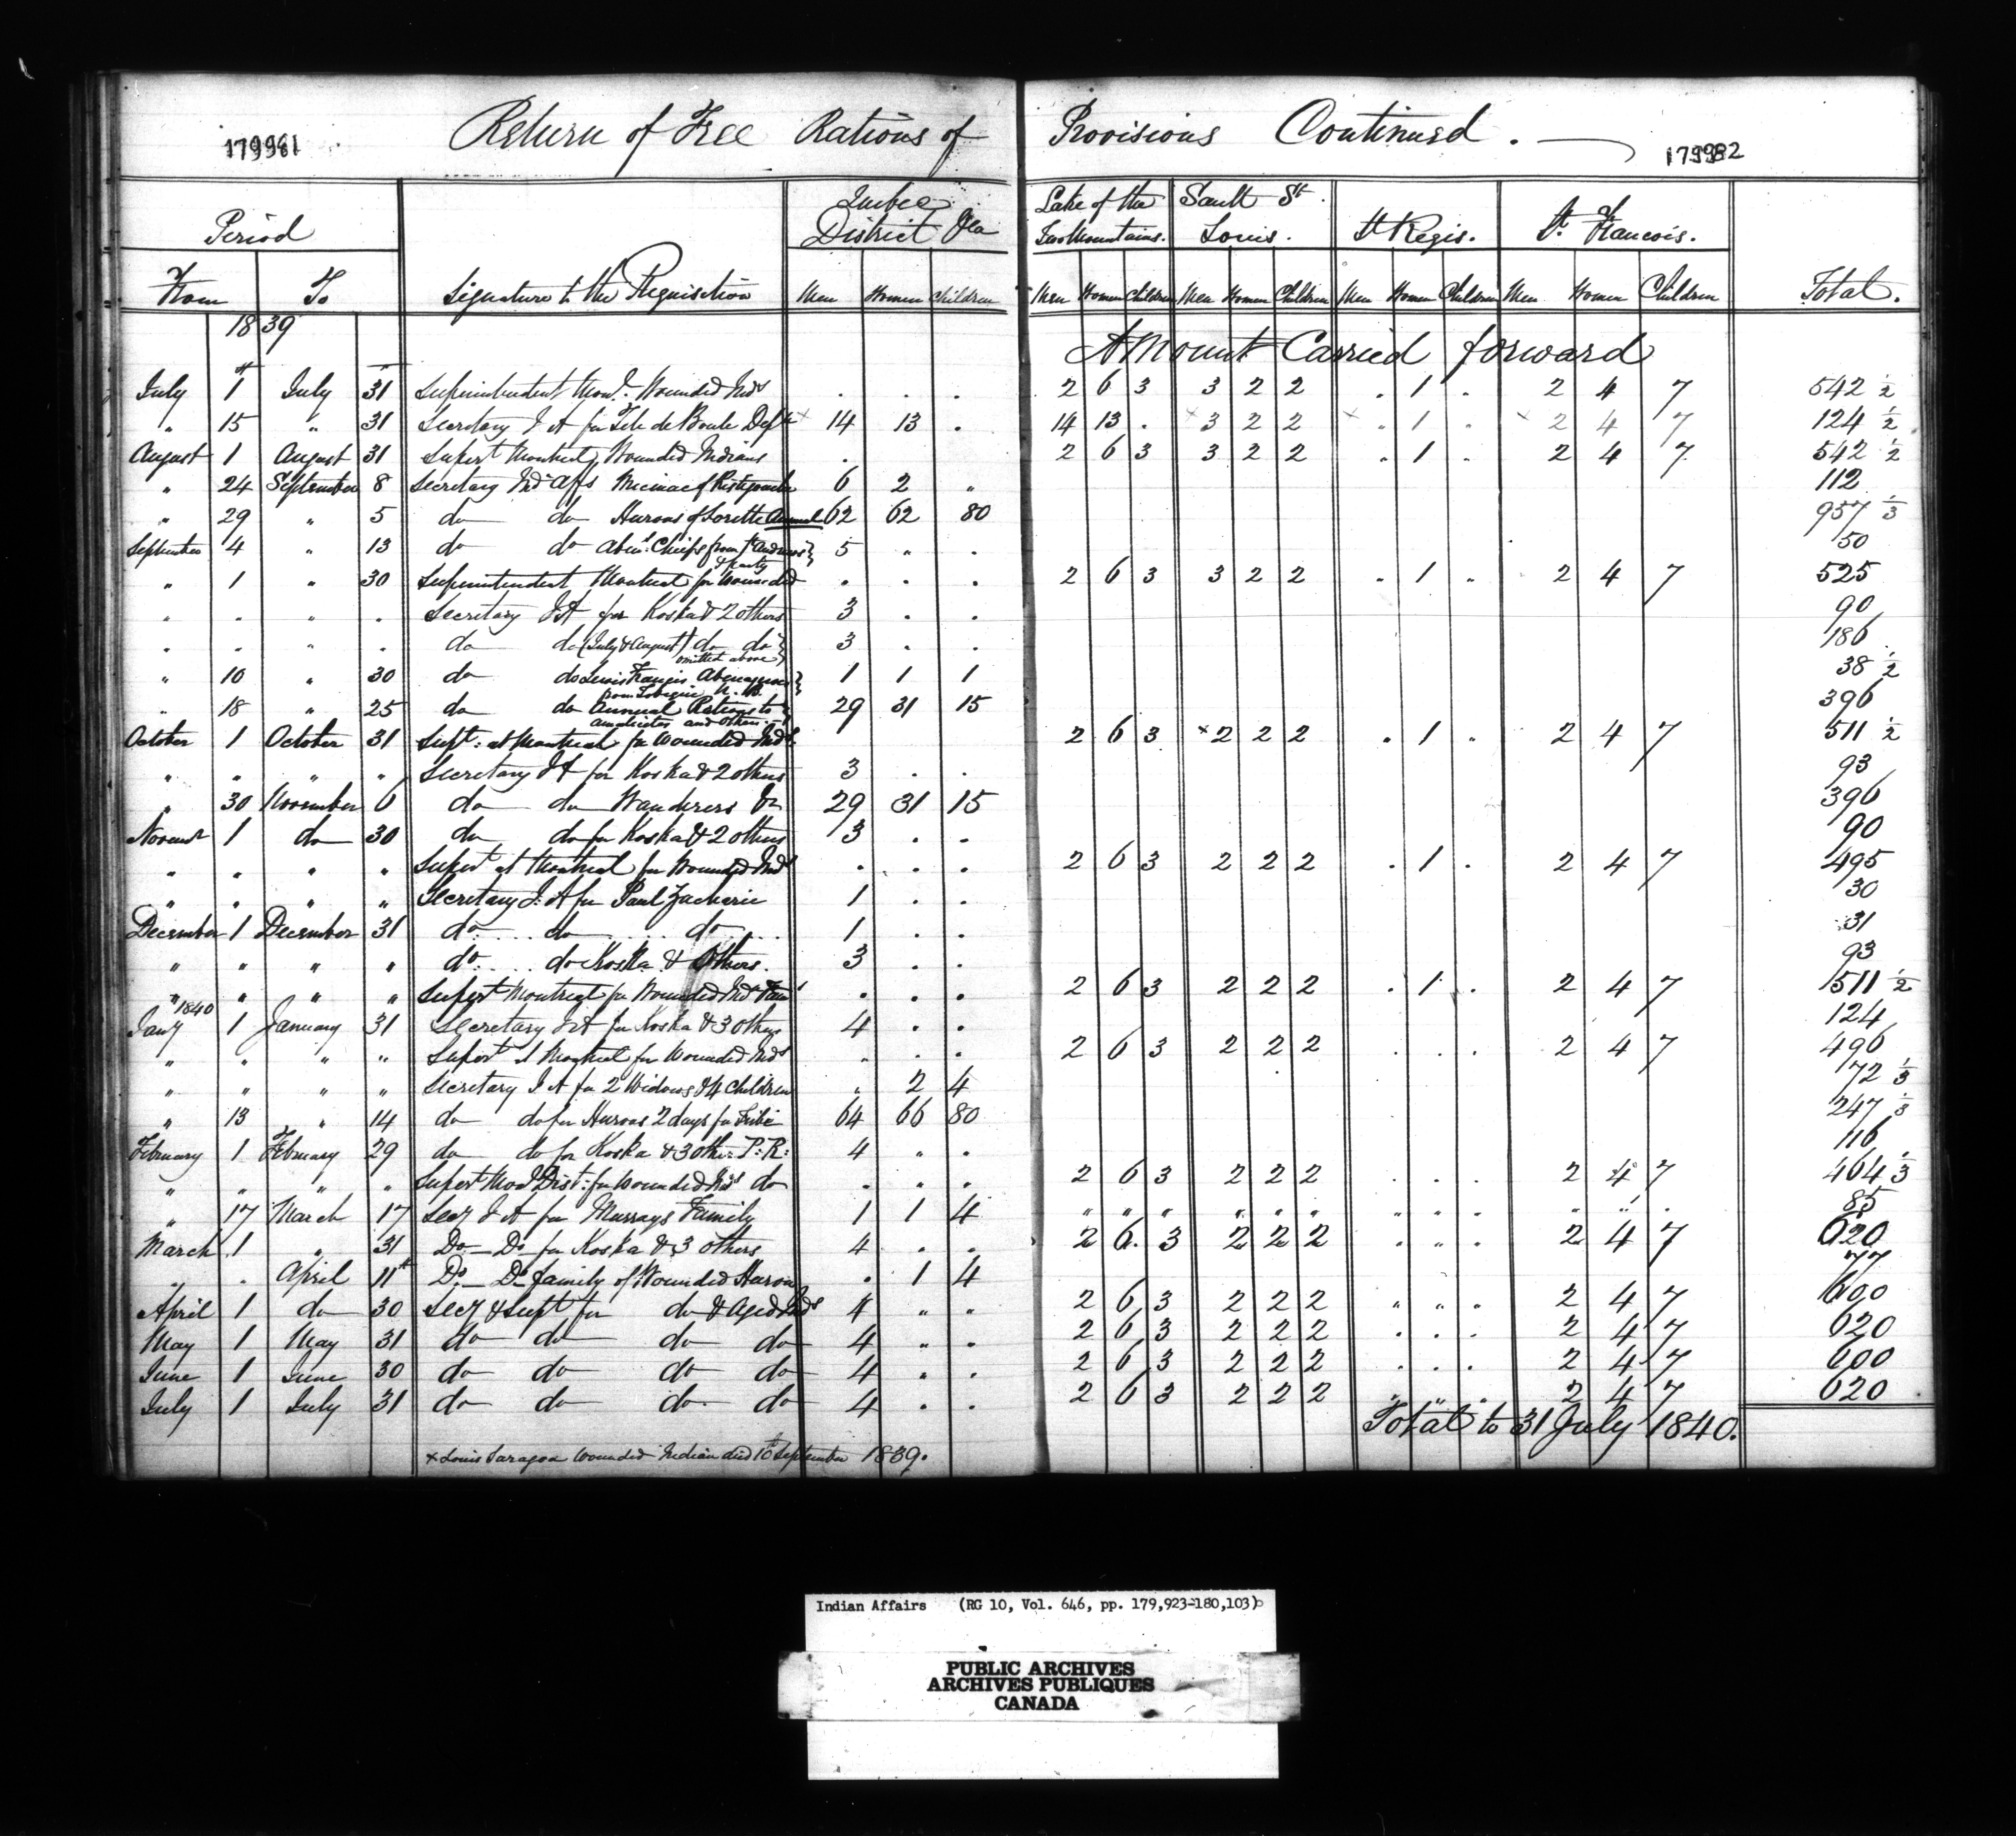 179981 Return of Free Rations of Provisions Continued. 179982
Period Quebec District &a Lake of the Two Mountains. Sault St. Louis. St Regis. St. Francois.
From To Signature to the Requisition Men Women Children Men Women Children Men Women Children Men Women Children Men Women Children Total.
1839
Amount Carried forward
July 1st July 31 Superintendent Wounded Inds . . . 2 6 3 3 2 2 . 1 . 2 4 7 542 1/2
" 15 " 31 Secretary I A for Tete de Boule × 14 13 . 14 13 . × 3 2 2 × . 1 . × 2 4 7 124 1/2
August 1 August 31 Supert Montreal, Wounded Indians . 2 6 3 3 2 2 . 1 . 2 4 7 542 1/2
" 24 September 8 Secretary Ind Affs Micmac of Ristigouche 6 2 " 112
" 29 " 5 do do Hurons of Lorette Annual 62 62 80 957 1/3
September 4 " 13 do do Aben. Chiefs from St Andrews & party 5 " . 50
" 1 " 30 Superintendent Montreal for Wounded . . . 2 6 3 3 2 2 . 1 . 2 4 7 525
" . " . Secretary I A for Koska & 2 others 3 . . 90
" . " . do do (July & August) do do omitted above 3 . . 186
" 10 " 30 do do Louis Francis Abenaquois from Tobique N. B. 1 1 1 38 1/2
" 18 " 25 do do Annual Rations to Amalicites and others 29 31 15 396
October 1 October 31 Supt: at Montreal for Wounded Inds 2 6 3 × 2 2 2 . 1 . 2 4 7 511 1/2
" " " " Secretary I A for Koska & 2 others 3 . . 93
" 30 November 6 do do Wanderers &c 29 31 15 396
Novemr 1 do 30 do do for Koska & 2 others 3 . . 90
" " " " Supert at Montreal for Wounded Inds . . . 2 6 3 2 2 2 . 1 . 2 4 7 495
" " " " Secretary I. A for Paul Zacharie 1 . . 30
December 1 December 31 do do do 1 . . 31
" " " " do. do Koska & Others. 3 . . 93
" " " " Supert Montreal for Wounded Inds . . . 2 6 3 2 2 2 . 1 . 2 4 7 511 1/2
1840
Jany 1 January 31 Secretary I A for Koska & 3 others 4 . . 124
" " " " Supert at Montreal for Wounded Inds . . . 2 6 3 2 2 2 . . . 2 4 7 496
" " " " Secretary I A for 2 Widows & 4 Children . 2 4 72 1/3
" 13 " 14 do do for Hurons 2 days for Tribe 64 66 80 247 1/3
February 1 February 29 do do for Koska & 3 other P: R: 4 " . 116
" " " " Supert Mon Dist: for Wounded Inds do . . . 2 6 3 2 2 2 . . . 2 4 7 464 1/3
" 17 March 17 Secy I A for Murrays Family 1 1 4 " " " " " " " " " " " . 85
March 1 " 31 Do Do for Koska & 3 others 4 . . 2 6. 3 2 2 2 " " " 2 4 7 620
" . April 11th Do Do family of Wounded Huron . 1 4 77
April 1 do 30 Secy & Supt for do & Aged Inds 4 " " 2 6 3 2 2 2 " " " 2 4 7 600
May 1 May 31 do do do do 4 " . 2 6 3 2 2 2 . . . 2 4 7 620
June 1 June 30 do do do do 4 . . 2 6 3 2 2 2 . . . 2 4 7 600
July 1 July 31 do do do. do 4 . . 2 6 3 2 2 2 " " . 2 4 7 620
Total to 31 July 1840.
× Louis Wounded Indian died 10th September 1839.
Indian Affairs (RG 10, Vol. 646, pp. 179,923-180,103)
PUBLIC ARCHIVES
ARCHIVES PUBLIQUES
CANADA